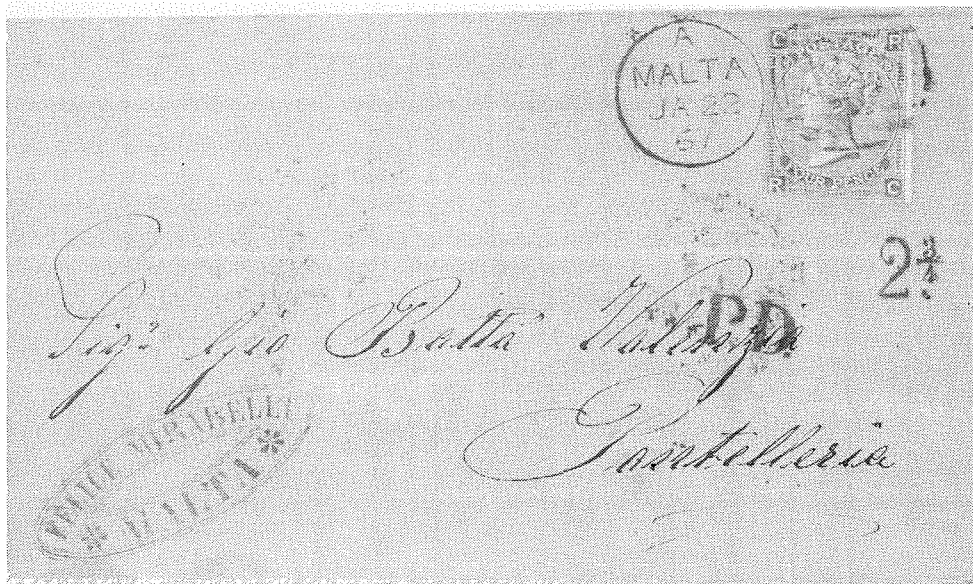 A
MALTA
JA 22
67
C R
POSTAGE
FOUR PENCE
R C
2¾
P.D.
Sigr Gio Batta Valenzia
Pantelleria
MIRABELLI
MALTA